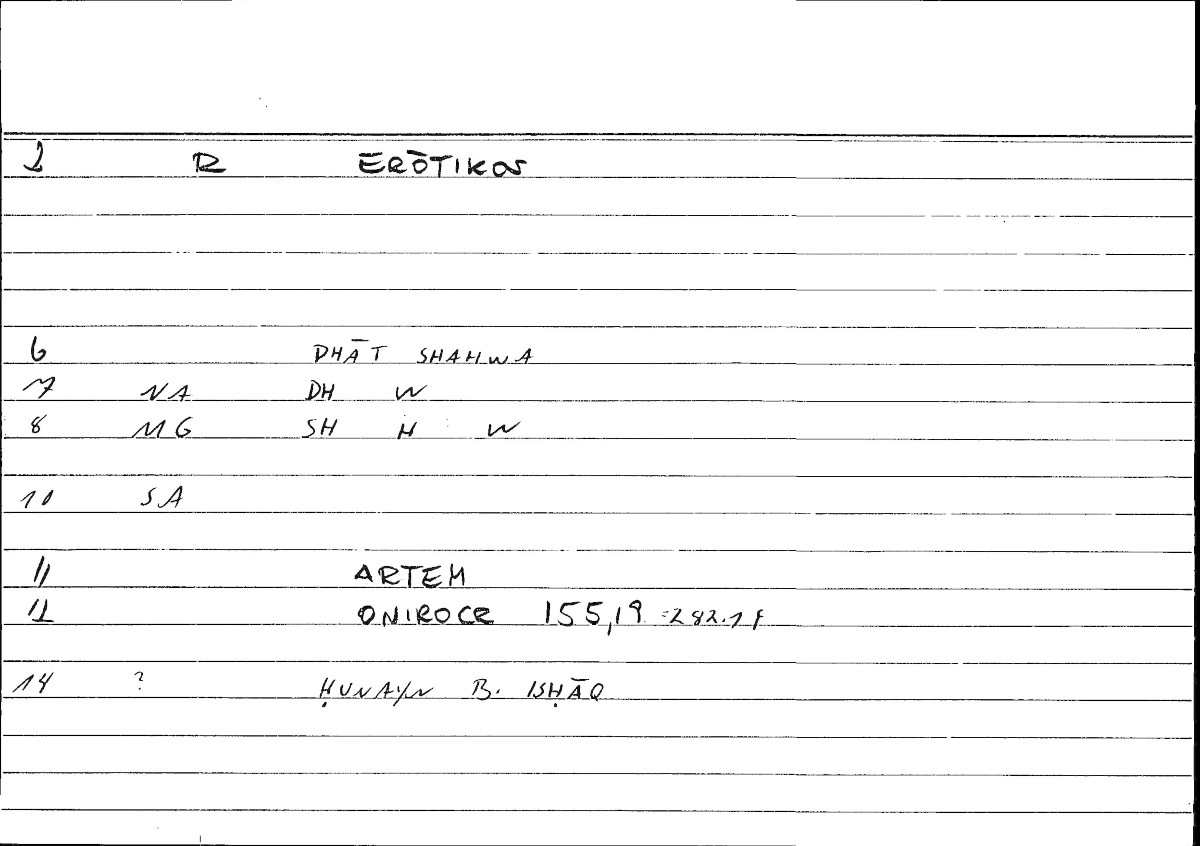 2 R ERŌTIKOS
6 DHĀT SHAHWA
7 NA DH W
8 MG SH H W
10 SA
11 ARTEM
12 ONIROCR 155,19 =282.1f
14 ? ḤUNAYN B. ISḤĀQ